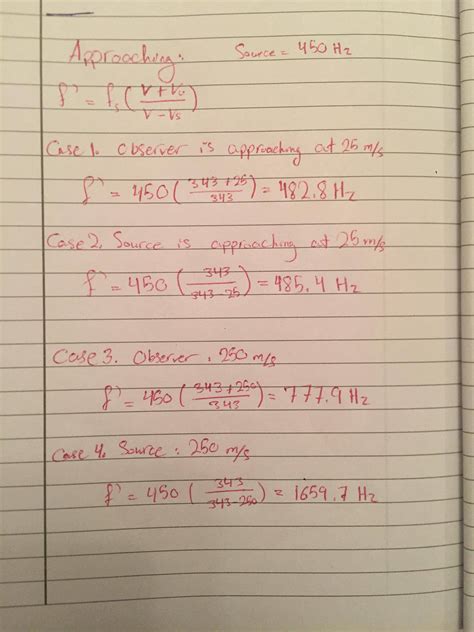 Approaching: Source = 450 Hz
f' = fs (V + Vo / V - Vs)
Case 1. Observer is approaching at 25 m/s
f' = 450 (343 + 25 / 343) = 482.8 Hz
Case 2. Source is approaching at 25 m/s
f' = 450 (343 / 343-25) = 485.4 Hz
Case 3. Observer : 250 m/s
f' = 450 (343 + 250 / 343) = 777.9 Hz
Case 4. Source : 250 m/s
f' = 450 (343 / 343-250) = 1659.7 Hz